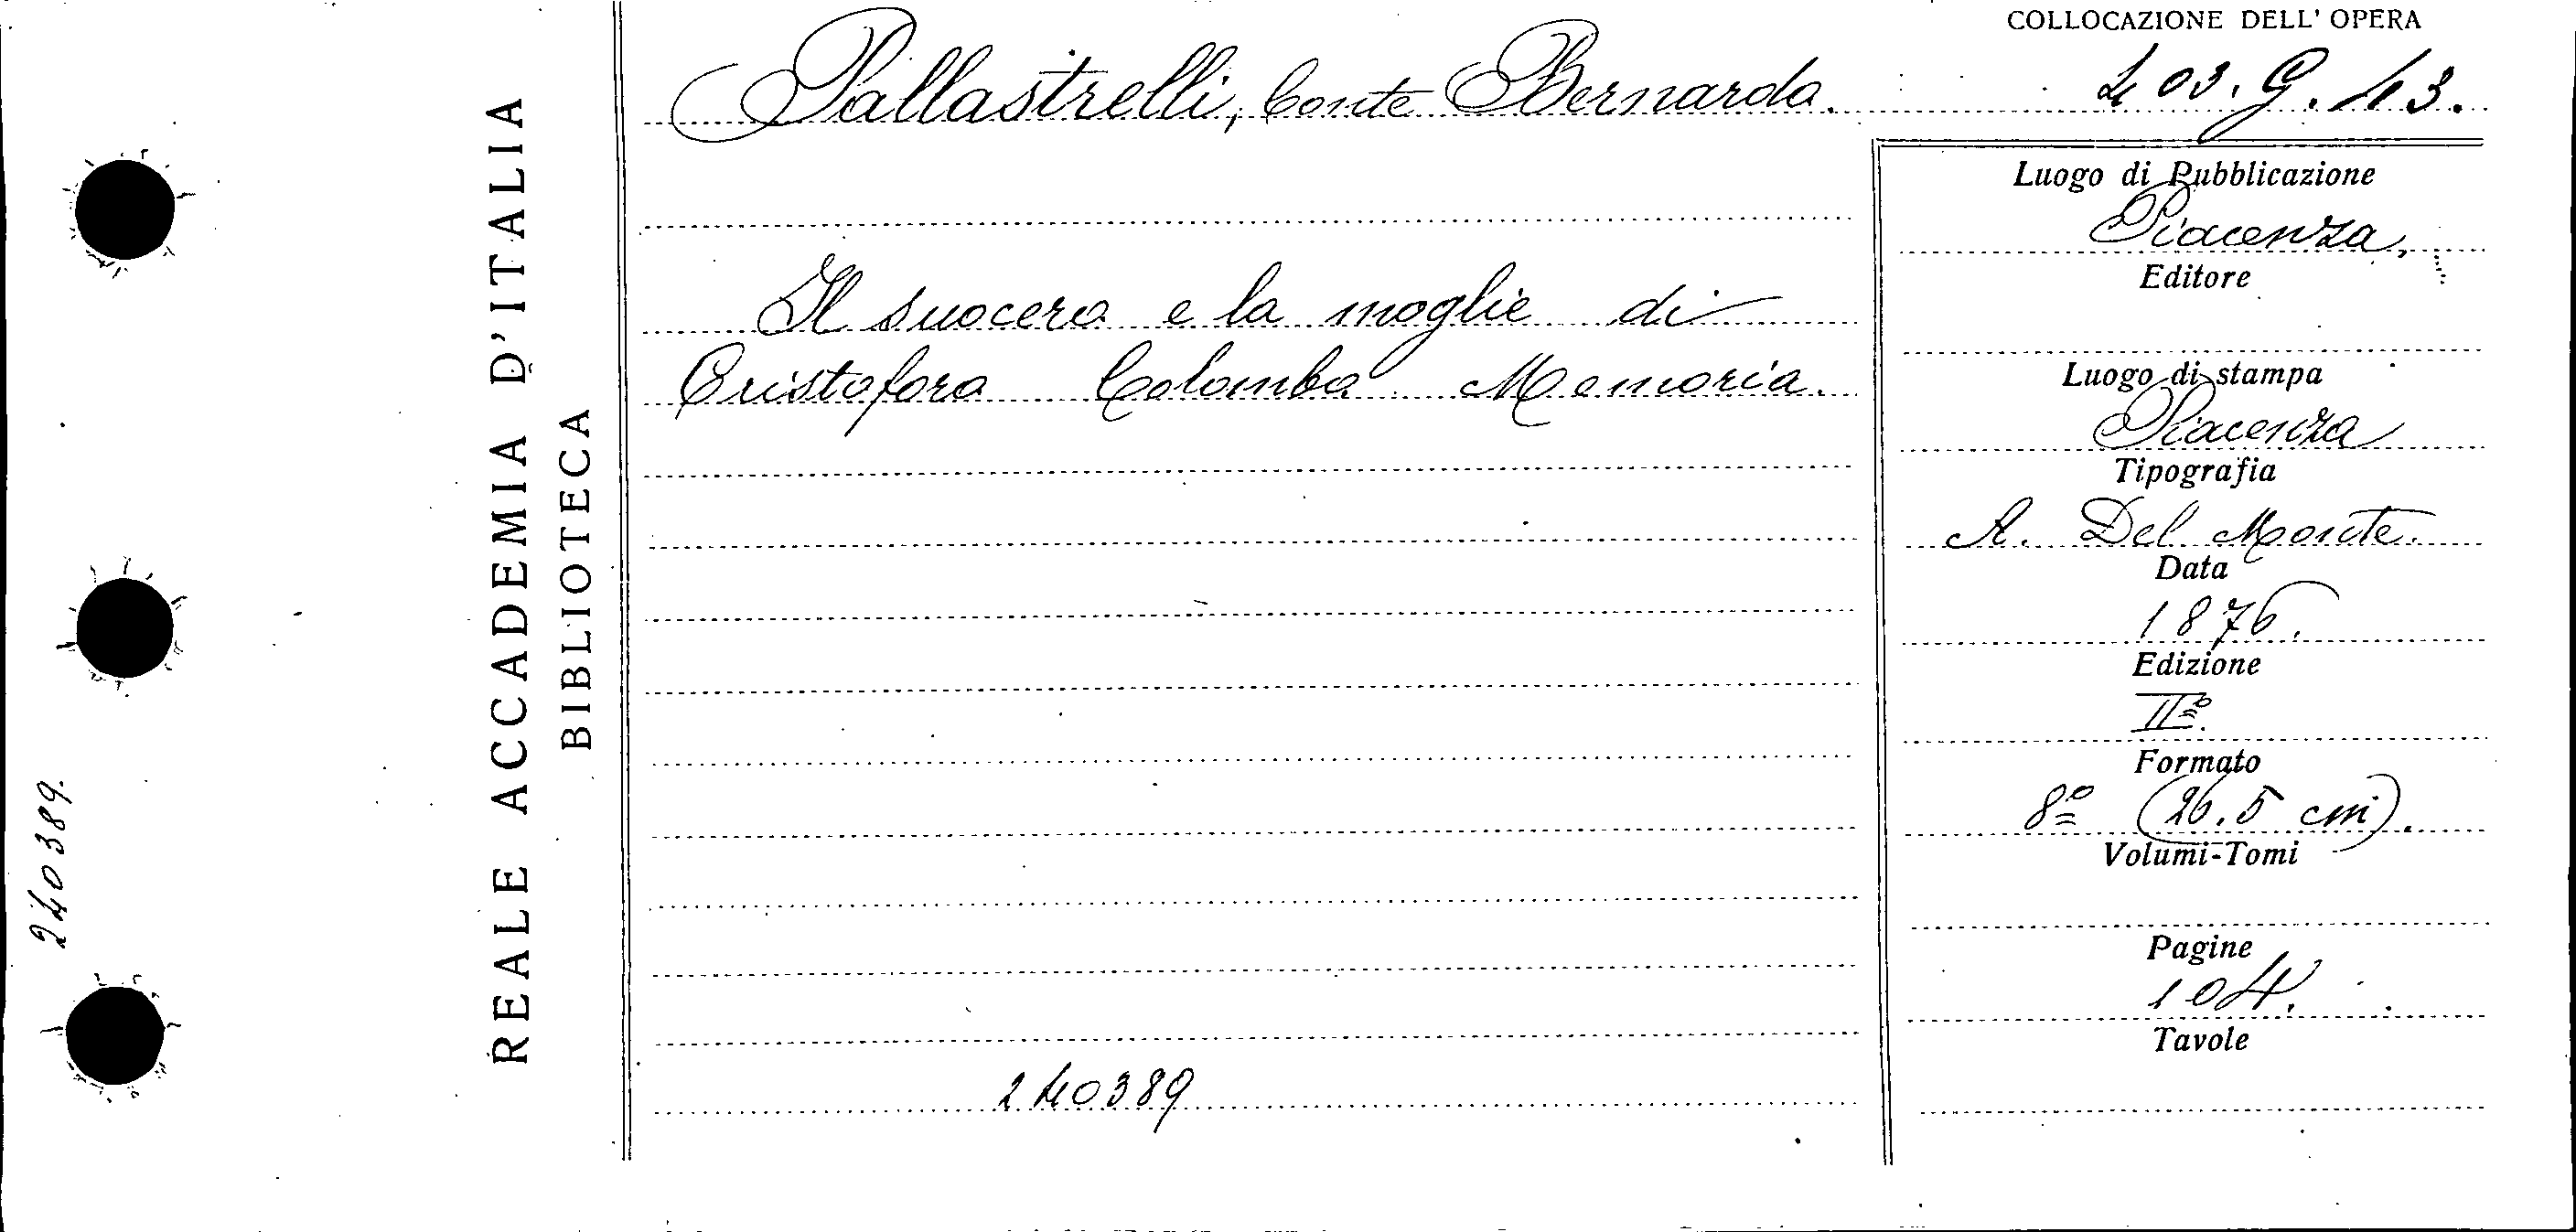 COLLOCAZIONE DELL' OPERA
Pallastrelli, Conte Bernardo.
403. G. 43.
Luogo di Pubblicazione
Piacenza,
Editore
Il suocero e la moglie di
Cristoforo Colombo Memoria.
Luogo di stampa
Piacenza
Tipografia
A. Del Monte.
Data
1876.
Edizione
IIº.
Formato
8º (26.5 cm).
Volumi-Tomi
Pagine
104.
Tavole
240389
REALE ACCADEMIA D'ITALIA
BIBLIOTECA
240389.